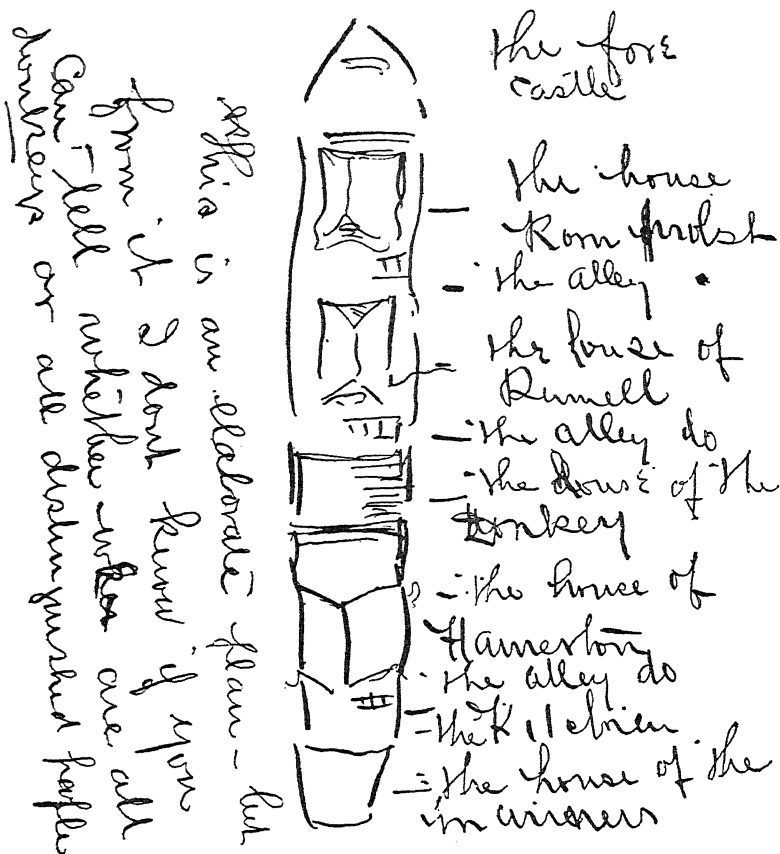 the fore
castle
the house
Kom
the alley
the house of
Rumell
the alley do
the house of the
donkey
the house of
Hamerton
the alley do
the
the house of the
mariners
This is an elaborate plan - but
from it I dont know if you
can - tell whether we are all
donkeys or all distinguished people